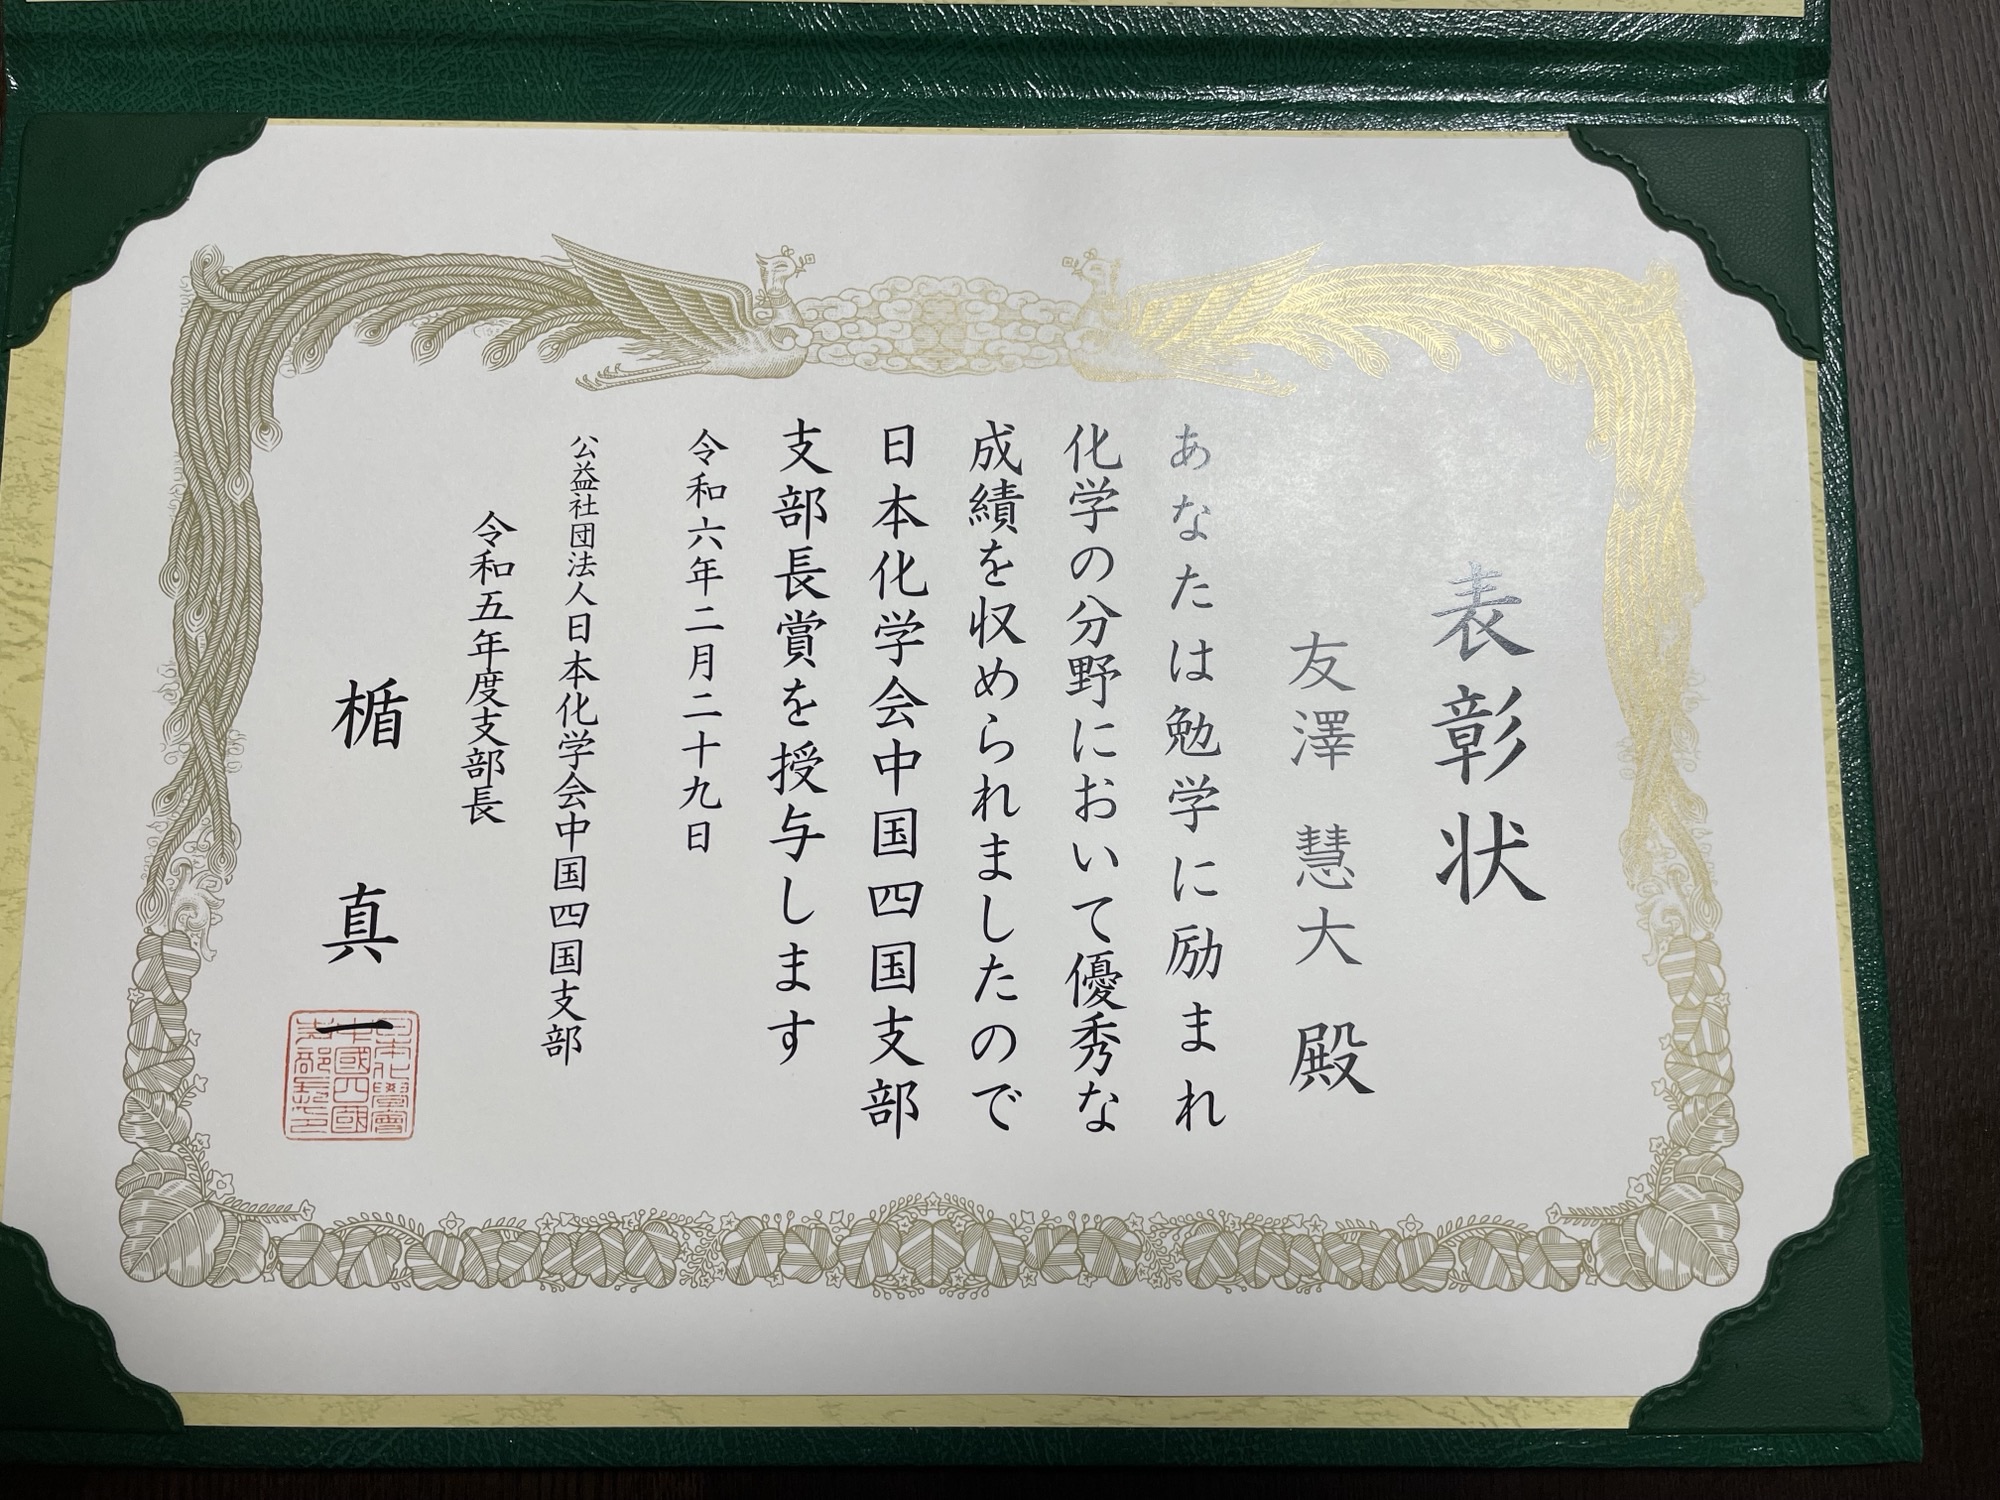 表彰状
友澤 慧大 殿
あなたは勉学に励まれ
化学の分野において優秀な
成績を収められましたので
日本化学会中国四国支部
支部長賞を授与します
令和六年二月二十九日
公益社団法人日本化学会中国四国支部
令和五年度支部長
楯 真一
日本化學會
中國四國
支部長之印